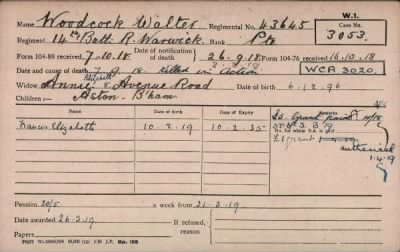 W.1.
Name Woodcock Walter Regimental No. 43645 Case No.
Regiment 14th Batt. R. Warwick. Rank Pte 3053.
Form 104-88 received 7.10.18 Date of notification) of death 26.9.18 Form 104-76 received 16.10.18
Date and cause of death 7.9.18 Killed in Action WCA 3020.
Widow Annie 8 Avenue Road 6.12.96
Children:— Aston B'ham
Date of Birth Remarks
Francis Elizabeth 10.2.19 10.2.35 £5. Grant
3.3.19
No. for whom S.A. is paid
£1 grant
authorised
1-4-19
Pension 20/5 a week from 21-3-19
Date awarded 26.3.19 If refused,
Papers reason